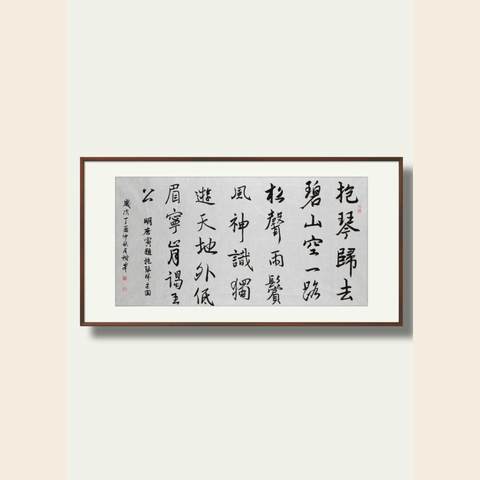 抱琴歸去
碧山空一路
松聲兩鬢
風神識獨
遊天地外低
眉寧肯謁王
公
明唐寅題抱琴歸去圖
歲次丁酉仲秋月